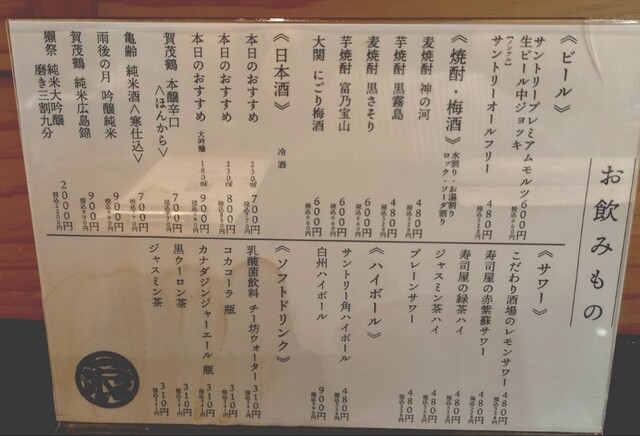 お飲みもの
《ビール》
サントリープレミアムモルツ
生ビール中ジョッキ 600円 税込660円
【ノンアル】
サントリーオールフリー 480円 税込528円
《焼酎・梅酒》 水割り・お湯割り
ロック・ソーダ割り
麦焼酎 神の河 480円 税込528円
芋焼酎 黒霧島 480円 税込528円
麦焼酎 黒さそり 600円 税込660円
芋焼酎 富乃宝山 600円 税込660円
大関 にごり梅酒 600円 税込660円
《日本酒》 冷酒
本日のおすすめ 230㎖ 700円 税込770円
本日のおすすめ 230㎖ 800円 税込880円
本日のおすすめ 大吟醸 180㎖ 900円 税込990円
賀茂鶴 本醸辛口
〈ほんから〉 700円 税込770円
亀齢 純米酒〈寒仕込〉 700円 税込770円
雨後の月 吟醸純米 900円 税込990円
賀茂鶴 純米広島錦 900円 税込990円
獺祭 純米大吟醸
磨き三割九分 2000円 税込2200円
《サワー》
こだわり酒場のレモンサワー 480円 税込528円
寿司屋の赤紫蘇サワー 480円 税込528円
寿司屋の緑茶ハイ 480円 税込528円
ジャスミン茶ハイ 480円 税込528円
プレーンサワー 480円 税込528円
《ハイボール》
サントリー角ハイボール 480円 税込528円
白州ハイボール 900円 税込990円
《ソフトドリンク》
乳酸菌飲料 チー坊ウォーター 310円 税込341円
コカコーラ 瓶 310円 税込341円
カナダジンジャーエール 瓶 310円 税込341円
黒ウーロン茶 310円 税込341円
ジャスミン茶 310円 税込341円